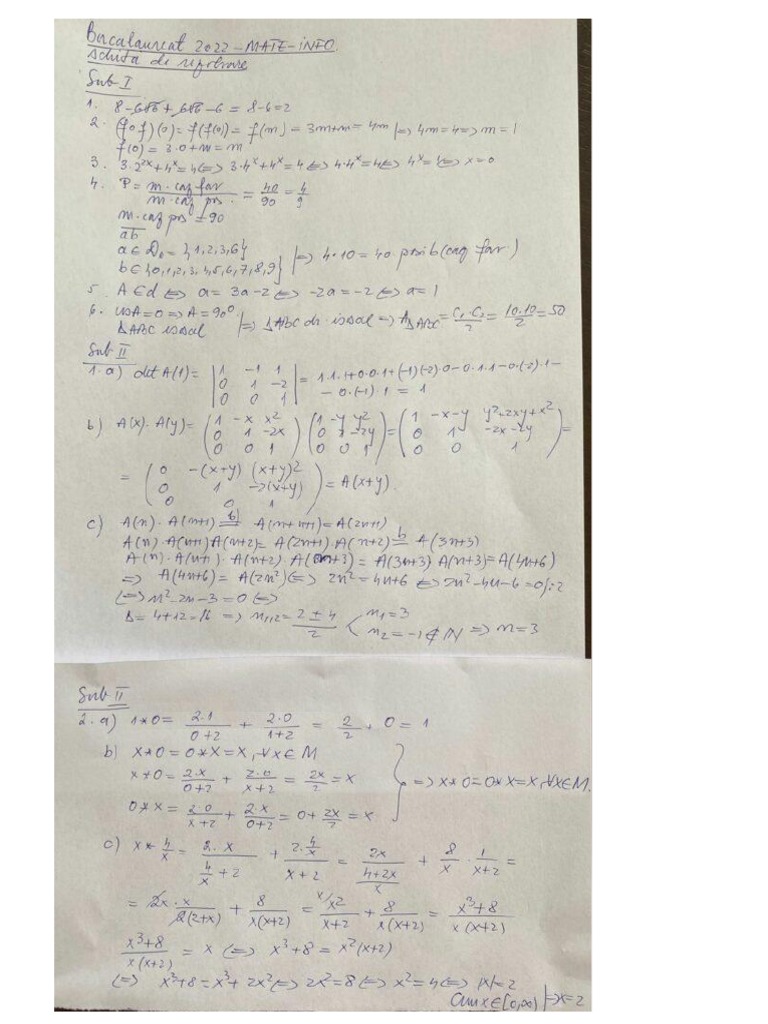 Bacalaureat 2022 - MATE-INFO
schița de rezolvare
Sub I
1. 8 - 6√6 + 6√6 - 6 = 8-6=2
2. (f∘f)(0) = f(f(0)) = f(m) = 3m+m = 4m |⇒ 4m=4 ⇒ m=1
f(0) = 3·0+m = m
3. 3·2^{2x}+4^x=4 ⇔ 3·4^x+4^x=4 ⇔ 4·4^x=4 ⇔ 4^x=1 ⇔ x=0
4. P = m. caz fav / m. caz pos. = 40/90 = 4/9
m. caz pos = 90
ab
a ∈ D₆ = {1,2,3,6}
b ∈ {0,1,2,3,4,5,6,7,8,9} |⇒ 4·10 = 40 posib (caz fav)
5. A∈d ⇔ a = 3a-2 ⇔ -2a=-2 ⇔ a=1
6. cosA=0 ⇒ A=90°
ΔABC isoscel |⇒ ΔABC dr. isoscel ⇒ A_{ΔABC} = C₁·C₂/2 = 10·10/2 = 50
Sub II
1. a) det A(1) = |1 -1 1| = 1·1·1+0·0·1+(-1)(-2)·0-0·1·1-0·(-2)·1-
|0 1 -2|
|0 0 1| - 0·(-1)·1 = 1
b) A(x)·A(y) = (1 -x x²) (1 -y y²) = (1 -x-y y²+2xy+x²) =
(0 1 -2x) (0 1 -2y) (0 1 -2x-2y)
(0 0 1) (0 0 1) (0 0 1)
= (0 -(x+y) (x+y)²) = A(x+y).
(0 1 -2(x+y))
(0 0 1)
c) A(n)·A(n+1) =^{b)} A(n+n+1) = A(2n+1)
A(n)·A(n+1)A(n+2) = A(2n+1)·A(n+2) =^{b} A(3n+3)
A(n)·A(n+1)·A(n+2)·A(n+3) = A(3n+3) A(n+3) = A(4n+6)
⇒ A(4n+6) = A(2n²) ⇔ 2n² = 4n+6 ⇔ 2n²-4n-6=0 |:2
⇔ n²-2n-3=0 ⇔
Δ = 4+12=16 ⇒ n₁,₂ = 2±4/2 < n₁=3
n₂=-1∉ℕ ⇒ n=3
Sub II
2. a) 1*0 = 2·1/0+2 + 2·0/1+2 = 2/2 + 0 = 1
b) x*0=0*x=x, ∀x∈M
x*0 = 2·x/0+2 + 2·0/x+2 = 2x/2 = x } ⇒ x*0=0*x=x, ∀x∈M.
0*x = 2·0/x+2 + 2·x/0+2 = 0+2x/2 = x
c) x*4/x = 2·x/(4/x+2) + 2·4/x/(x+2) = 2x/((4+2x)/x) + 8/x · 1/x+2 =
= 2x·x/2(2+x) + 8/x(x+2) = ^{x/}x²/x+2 + 8/x(x+2) = x³+8/x(x+2)
x³+8/x(x+2) = x ⇔ x³+8 = x²(x+2)
⇔ x³+8=x³+2x² ⇔ 2x²=8 ⇔ x²=4 ⇔ |x|=2
cum x∈[0,∞) |⇒ x=2